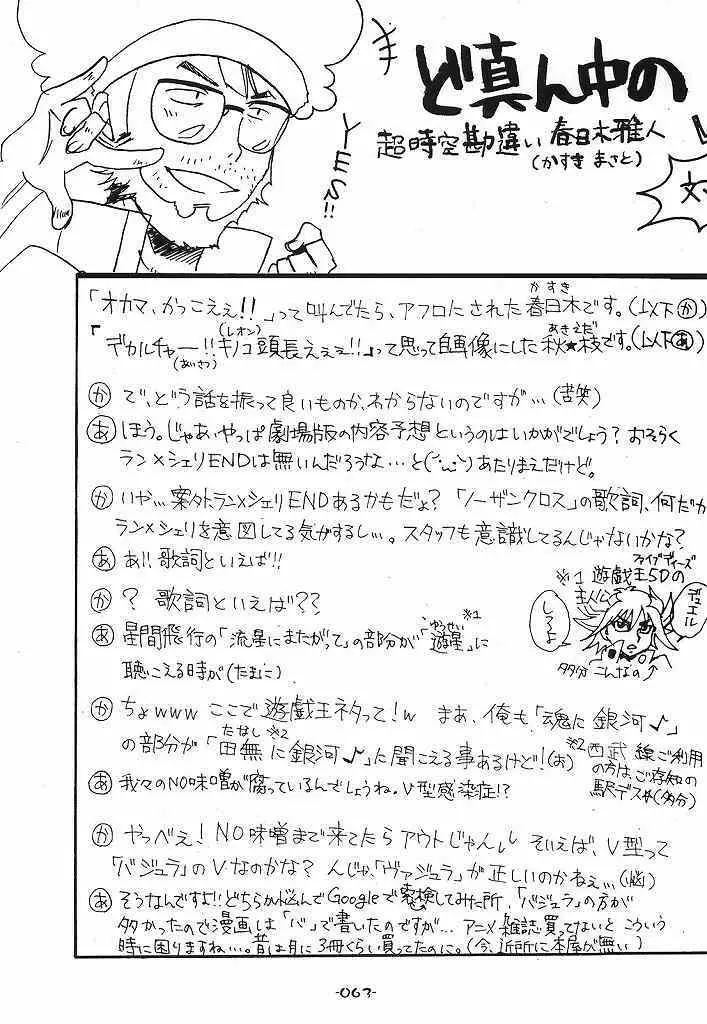 ど真ん中の
超時空勘違い 春日木雅人
(かすき まさと)
イエス!!
対
かすき
「オカマ、かっこえぇ!!」って叫んでたら、アフロにされた春日木です。(以下か)
(レオン) あきえだ
「デカルチャー!!キノコ頭長ぇぇぇ!!」って思って自画像にした秋★枝です。(以下あ)
(あいさつ)
か で、どう話を振って良いものか、わからないのですが…(苦笑)
あ ほう。じゃあ、やっぱ劇場版の内容予想というのはいかがでしょう?おそらく
ラン×シェリENDは無いんだろうな…と(´・ω・`)あたりまえだけど。
か いや…案外ラン×シェリENDあるかもだよ?「ノーザンクロス」の歌詞、何だか
ラン×シェリを意図してる気がするし…。スタッフも意識してるんじゃないかな?
あ あ!!歌詞といえば!!
か ? 歌詞といえば??
あ 星間飛行の「流星にまたがって」の部分が「遊星」に
ゆうせい ※1
聴こえる時が(たまに)
ファイブディーズ
※1 遊戯王5Dの
主人公
デュエル
してろよ
多分こんなの
か ちょwww ここで遊戯王ネタって!w まあ、俺も「魂に銀河♪」
たなし ※2
の部分が「田無に銀河♪」に聞こえる事あるけど!(お)
※2 西武線ご利用
の方はご存知の
駅デス☆(多分)
あ 我々のNO味噌が腐っているんでしょうね。V型感染症!?
か やっべえ!NO味噌まで来てたらアウトじゃんレレ そいえば、V型って
「バジュラ」のVなのかな? んじゃ、「ヴァジュラ」が正しいのかねぇ…(悩)
あ そうなんですよ!!どちらか悩んでGoogleで検索してみた所、「バジュラ」の方が
多かったので漫画は「バ」で書いたのですが… アニメ雑誌買ってないと こういう
時に困りますねぃ…。昔は月に3冊くらい買ってたのに。(今、近所に本屋が無い)
-063-